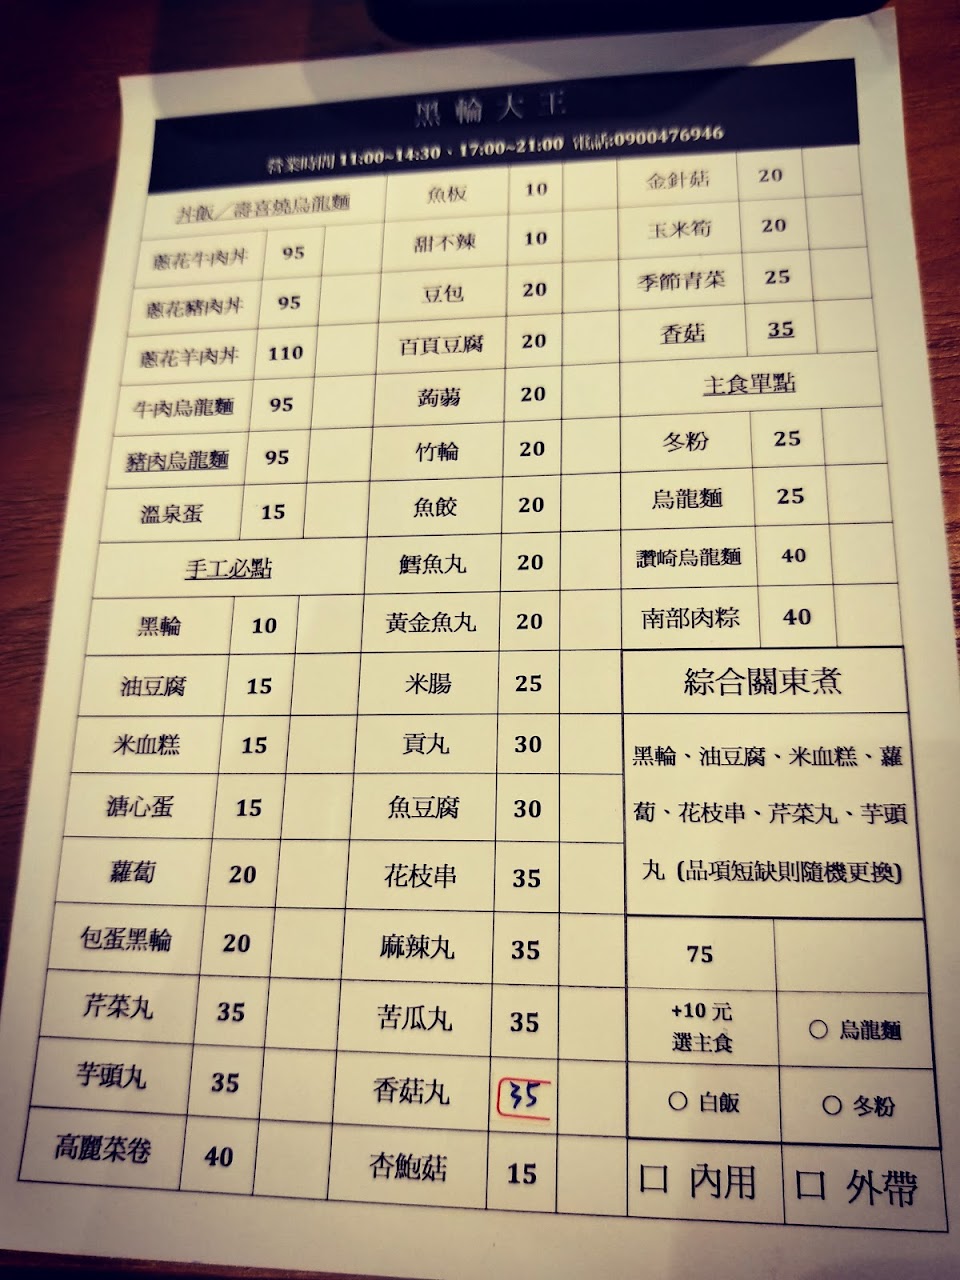 黑輪大王
營業時間 11:00~14:30、17:00~21:00 電話:0900476946
丼飯／壽喜燒烏龍麵
蔥花牛肉丼 95
蔥花豬肉丼 95
蔥花羊肉丼 110
牛肉烏龍麵 95
豬肉烏龍麵 95
溫泉蛋 15
手工必點
黑輪 10
油豆腐 15
米血糕 15
溏心蛋 15
蘿蔔 20
包蛋黑輪 20
芹菜丸 35
芋頭丸 35
高麗菜卷 40
魚板 10
甜不辣 10
豆包 20
百頁豆腐 20
蒟蒻 20
竹輪 20
魚餃 20
鱈魚丸 20
黃金魚丸 20
米腸 25
貢丸 30
魚豆腐 30
花枝串 35
麻辣丸 35
苦瓜丸 35
香菇丸 35
杏鮑菇 15
金針菇 20
玉米筍 20
季節青菜 25
香菇 35
主食單點
冬粉 25
烏龍麵 25
讚崎烏龍麵 40
南部肉粽 40
綜合關東煮
黑輪、油豆腐、米血糕、蘿
蔔、花枝串、芹菜丸、芋頭
丸 (品項短缺則隨機更換)
75
+10 元
選主食
○ 烏龍麵
○ 白飯
○ 冬粉
口 內用
口 外帶